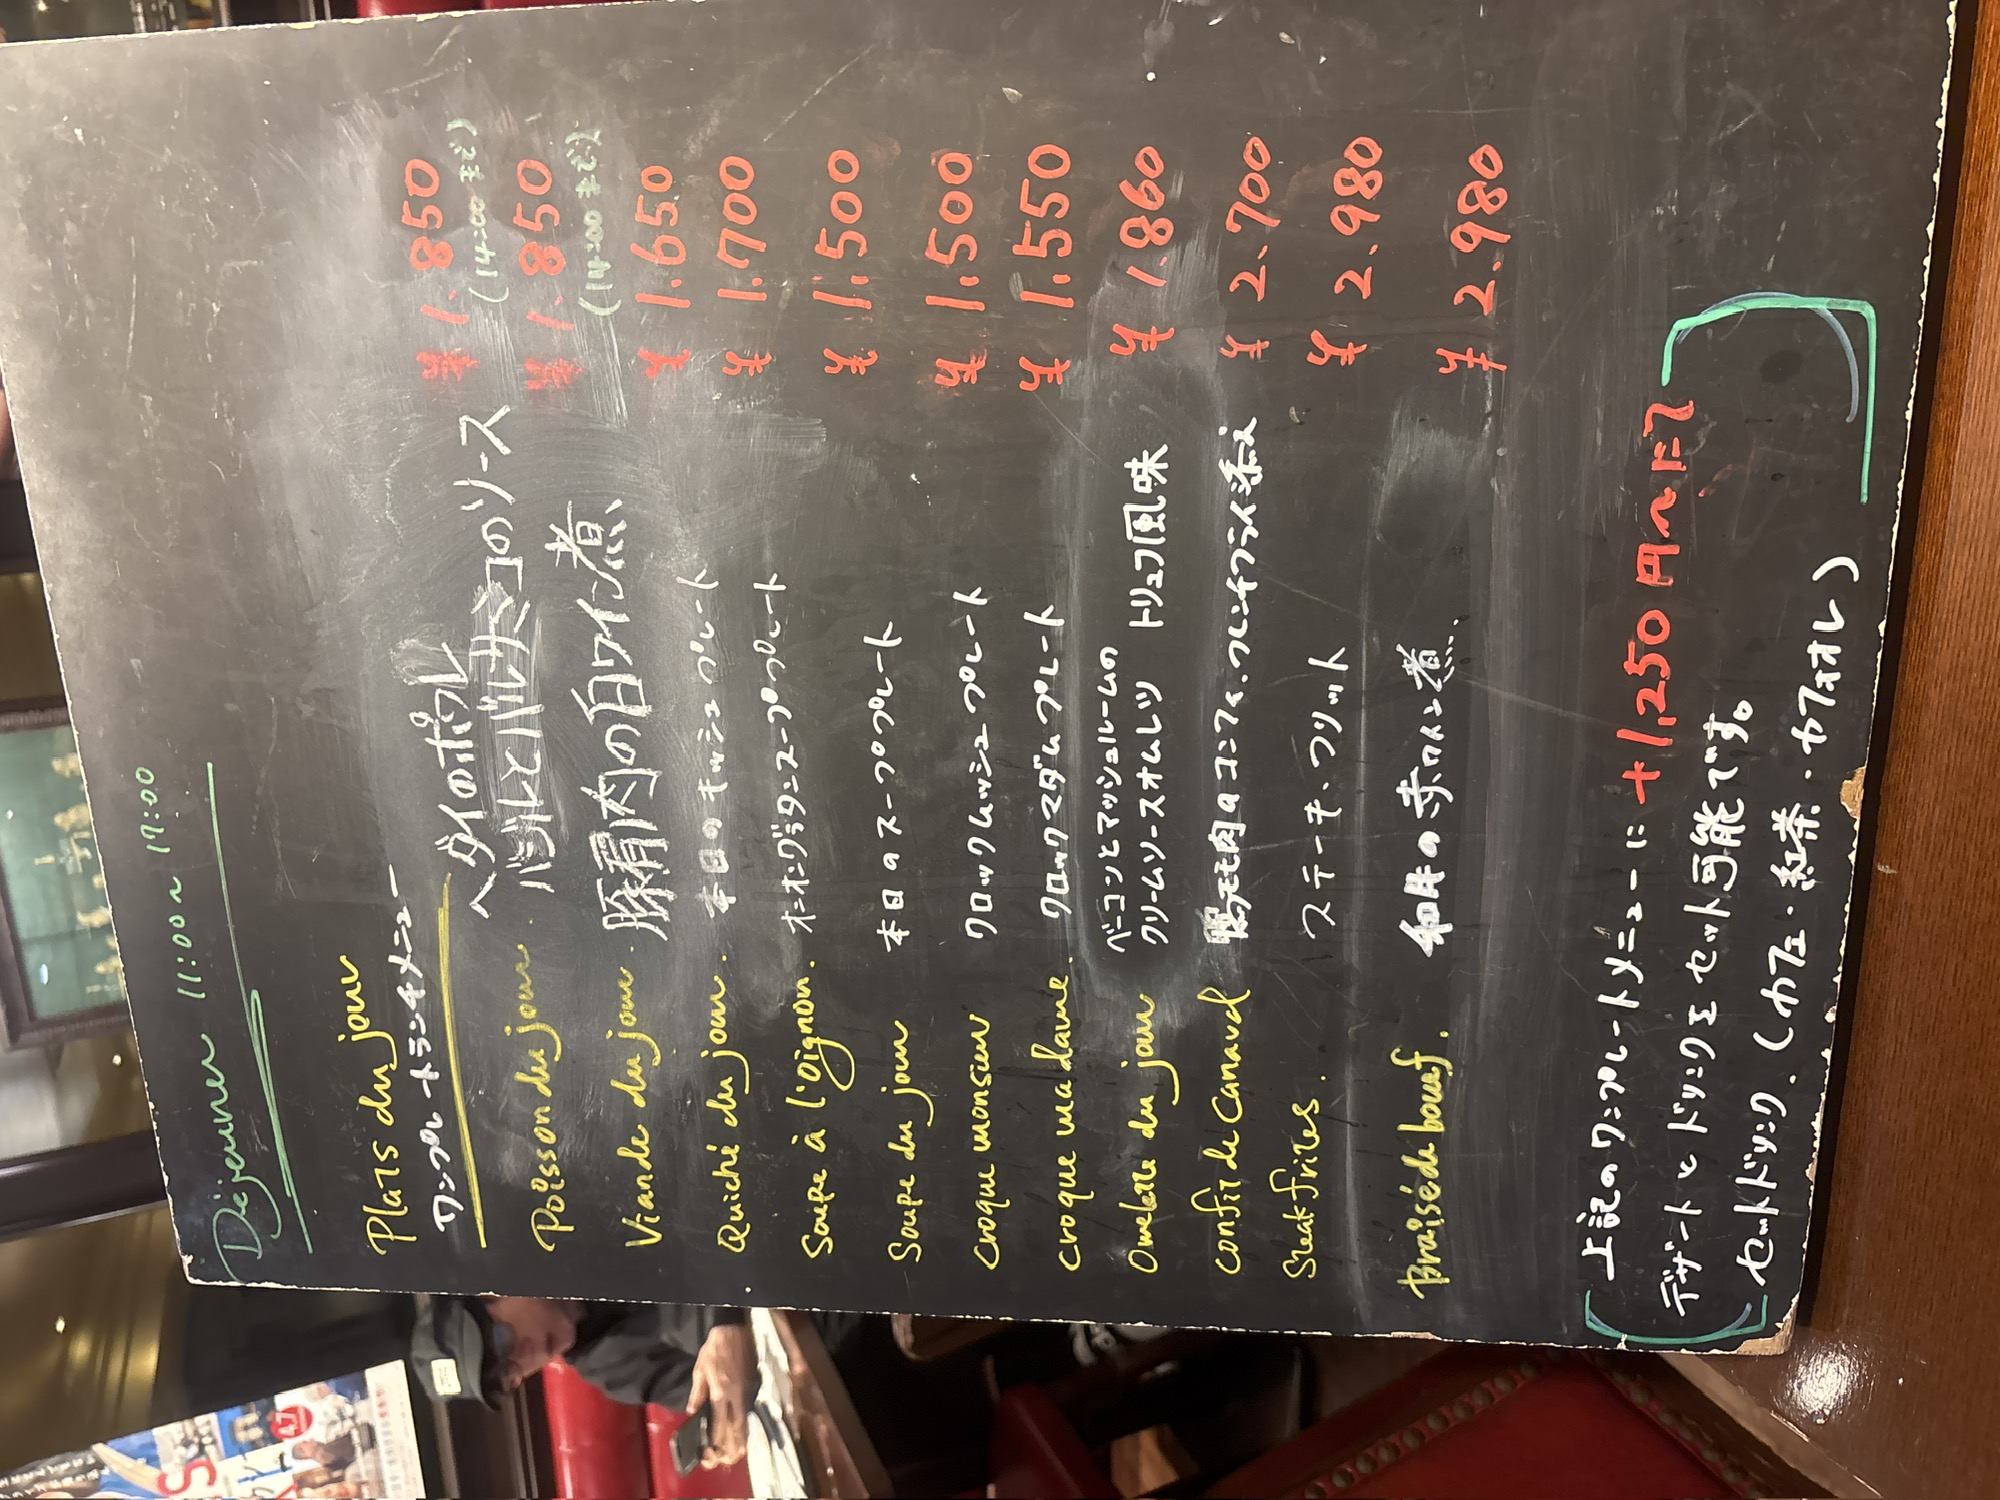 Déjeuner 11:00〜17:00
Plats du jour
ワンプレートランチメニュー
Poisson du jour. ヘダイのポワレ ¥1.850
バジルとバルサミコのソース (14:00まで)
Viande du jour. 豚肩肉の白ワイン煮 ¥1.850
(14:00まで)
Quiché du jour. 本日のキッシュプレート ¥1.650
Soupe à l'oignon. オニオングラタンスーププレート ¥1.700
Soupe du jour 本日のスーププレート ¥1.500
croque monsieur クロックムッシュプレート ¥1.500
croque madame. クロックマダムプレート ¥1.550
Omelette du jour ベーコンとマッシュルームの
クリームソースオムレツ トリュフ風味 ¥1.860
confit de Canard 鴨モモ肉のコンフィ・フレンチフライ添え ¥2.700
Steak frites. ステーキ・フリット ¥2.980
Braisé de bœuf. 和牛の赤ワイン煮 ¥2.980
上記のワンプレートメニューに +1,250円〜にて
デザートとドリンクをセット可能です。
セットドリンク.(カフェ・紅茶・カフェオレ)